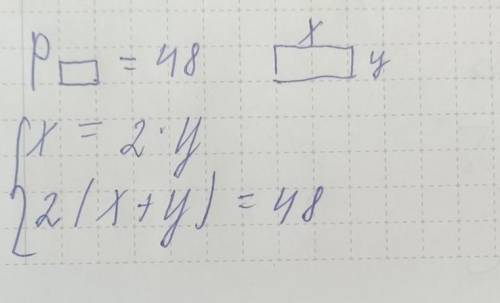 P▭ = 48
x
y
x = 2·y
2(x+y) = 48